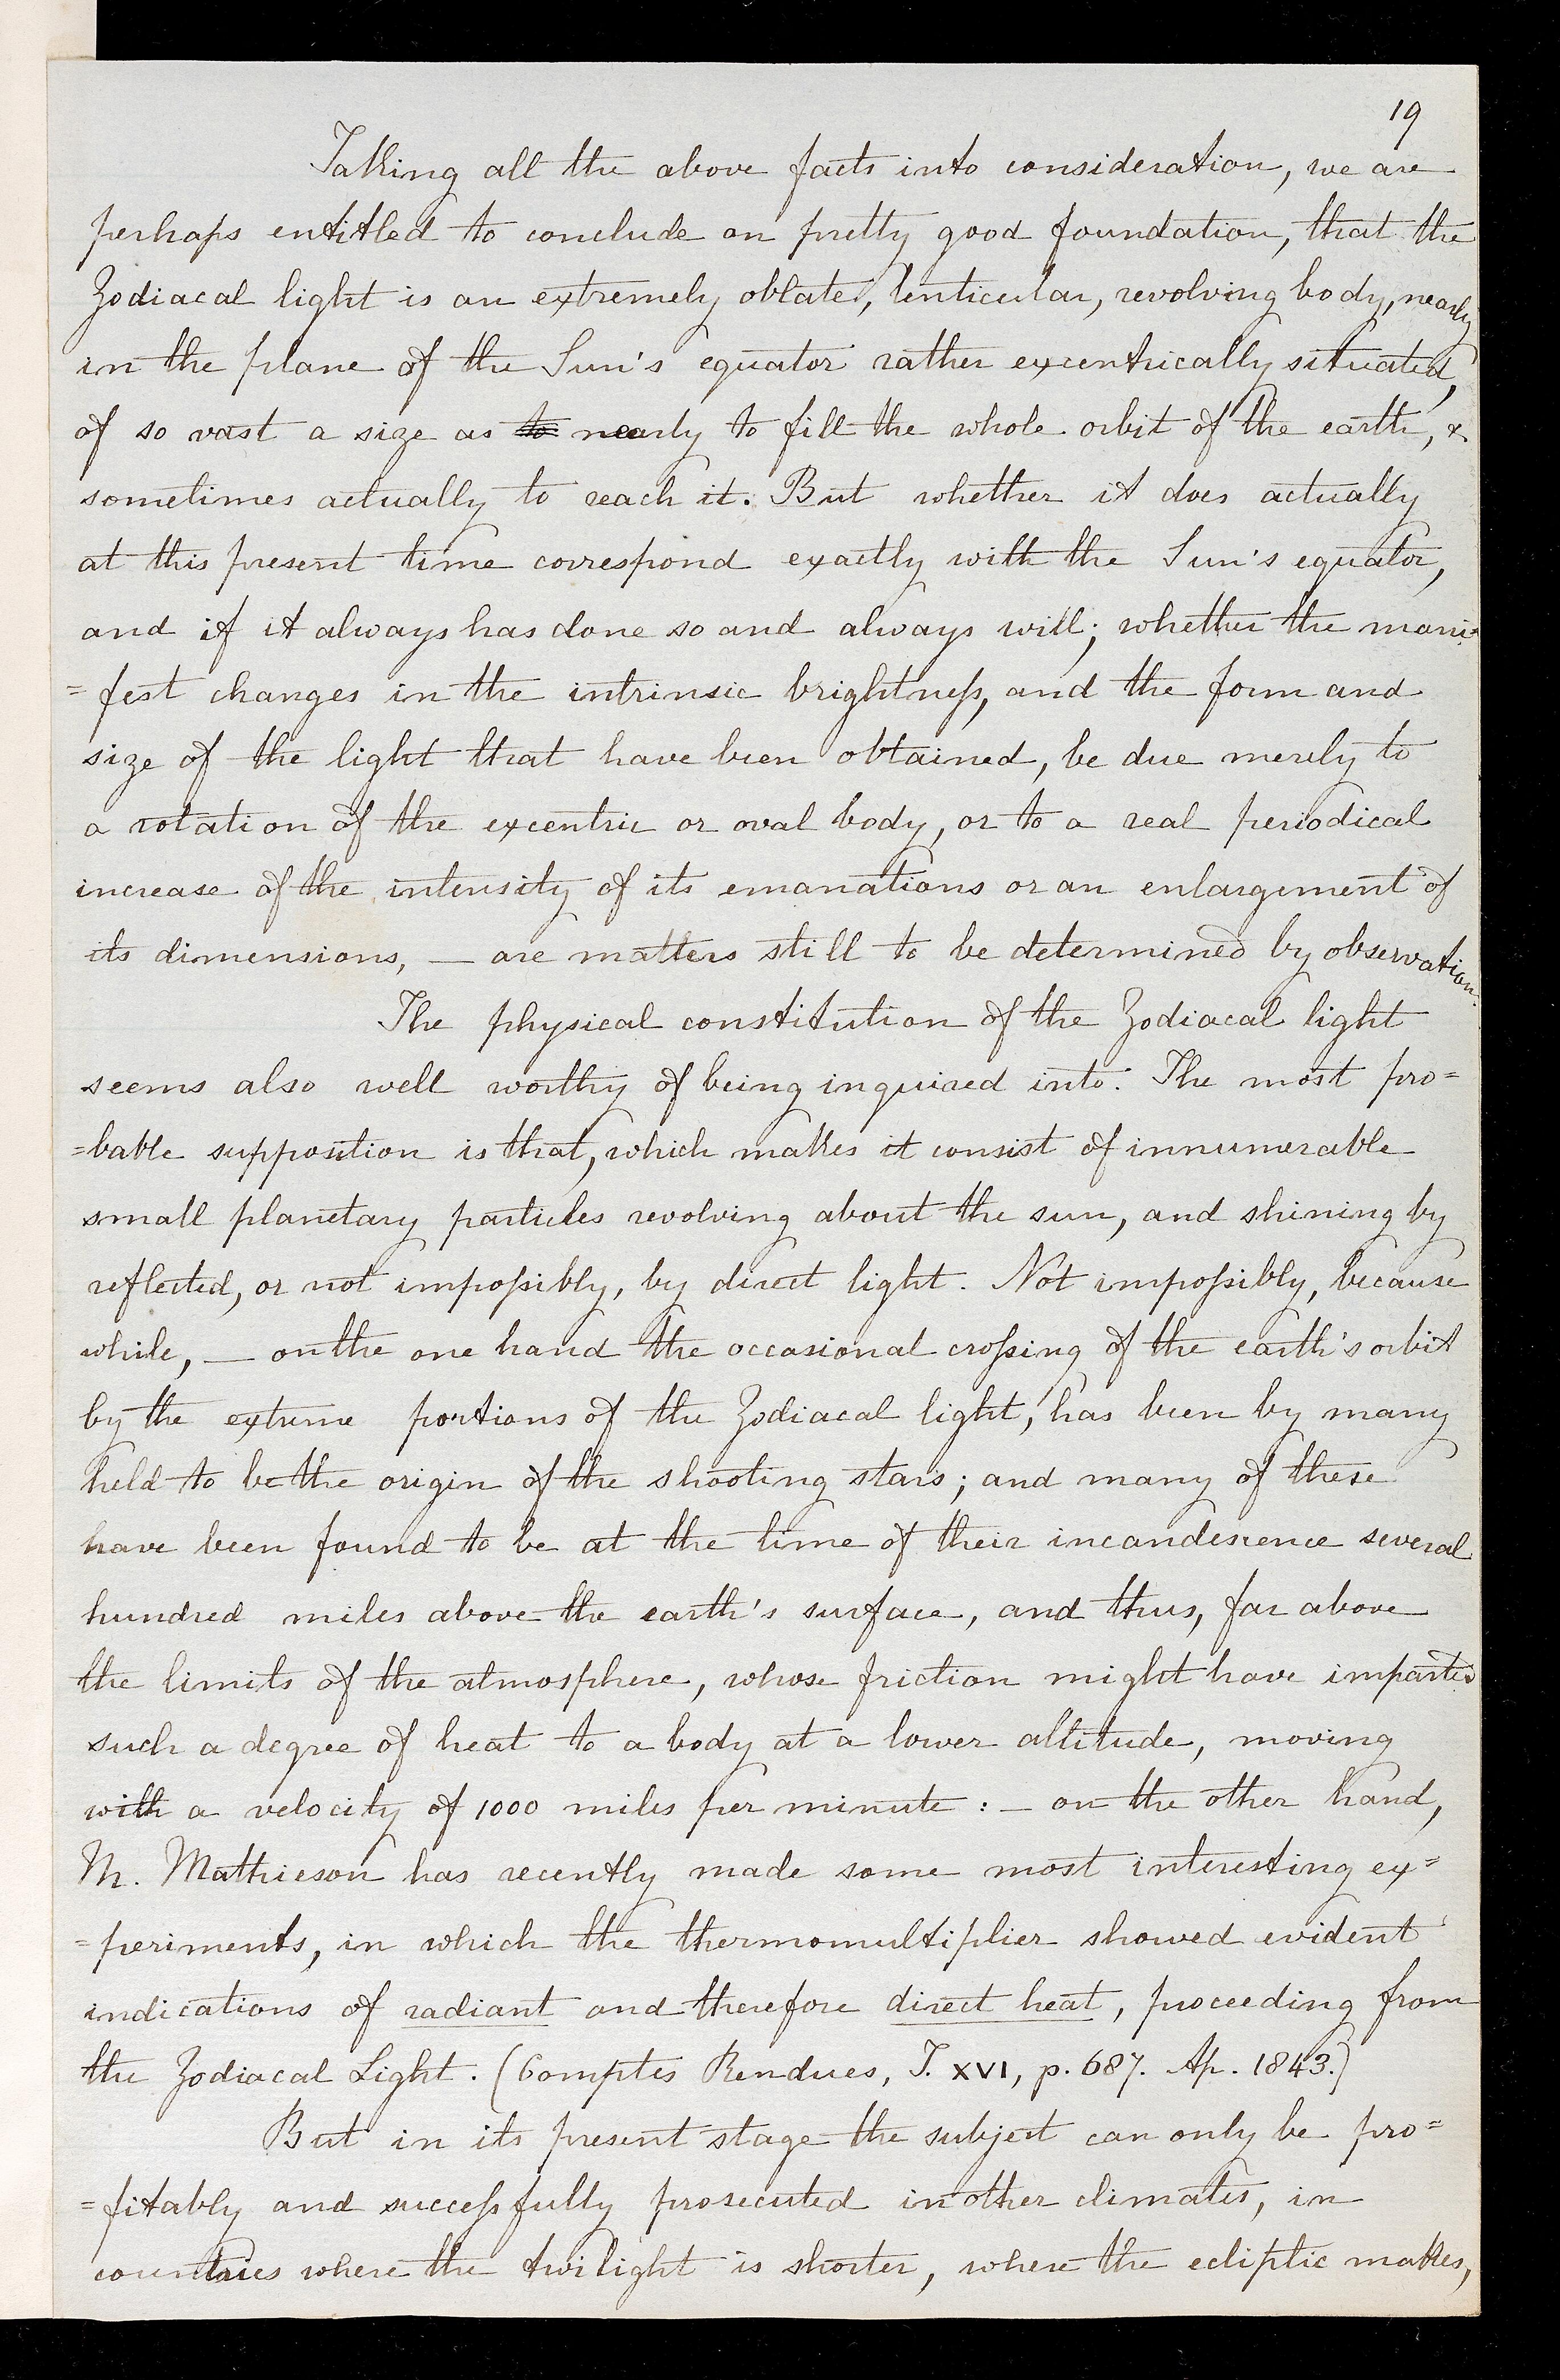 19
Taking all the above facts into consideration, we are
perhaps entitled to conclude on pretty good foundation, that the
Zodiacal light is an extremely oblate, lenticular, revolving body, nearly
in the plane of the Sun's equator rather excentrically situated,
of so vast a size as to nearly to fill the whole orbit of the earth, &
sometimes actually to reach it. But whether it does actually
at this present time correspond exactly with the Sun's equator,
and if it always has done so and always will; whether the mani=
=fest changes in the intrinsic brightneſs, and the form and
size of the light that have been obtained, be due merely to
a rotation of the excentric or oval body, or to a real periodical
increase of the intensity of its emanations or an enlargement of
its dimensions, — are matters still to be determined by observation.
The physical constitution of the Zodiacal light
seems also well worthy of being inquired into. The most pro=
=bable supposition is that, which makes it consist of innumerable
small planetary particles revolving about the sun, and shining by
reflected, or not impoſsibly, by direct light. Not impoſsibly, because
while, — on the one hand the occasional croſsing of the earth's orbit
by the extreme portions of the Zodiacal light, has been by many
held to be the origin of the shooting stars; and many of these
have been found to be at the time of their incandescence several
hundred miles above the earth's surface, and thus, far above
the limits of the atmosphere, whose friction might have imparted
such a degree of heat to a body at a lower altitude, moving
with a velocity of 1000 miles per minute : — on the other hand,
M. Mathieson has recently made some most interesting ex=
=periments, in which the thermomultiplier showed evident
indications of radiant and therefore direct heat, proceeding from
the Zodiacal Light. (Comptes Rendues, T. XVI, p. 687. Ap. 1843.)
But in its present stage the subject can only be pro=
=fitably and succeſsfully prosecuted in other climates, in
countries where the twilight is shorter, where the ecliptic makes,